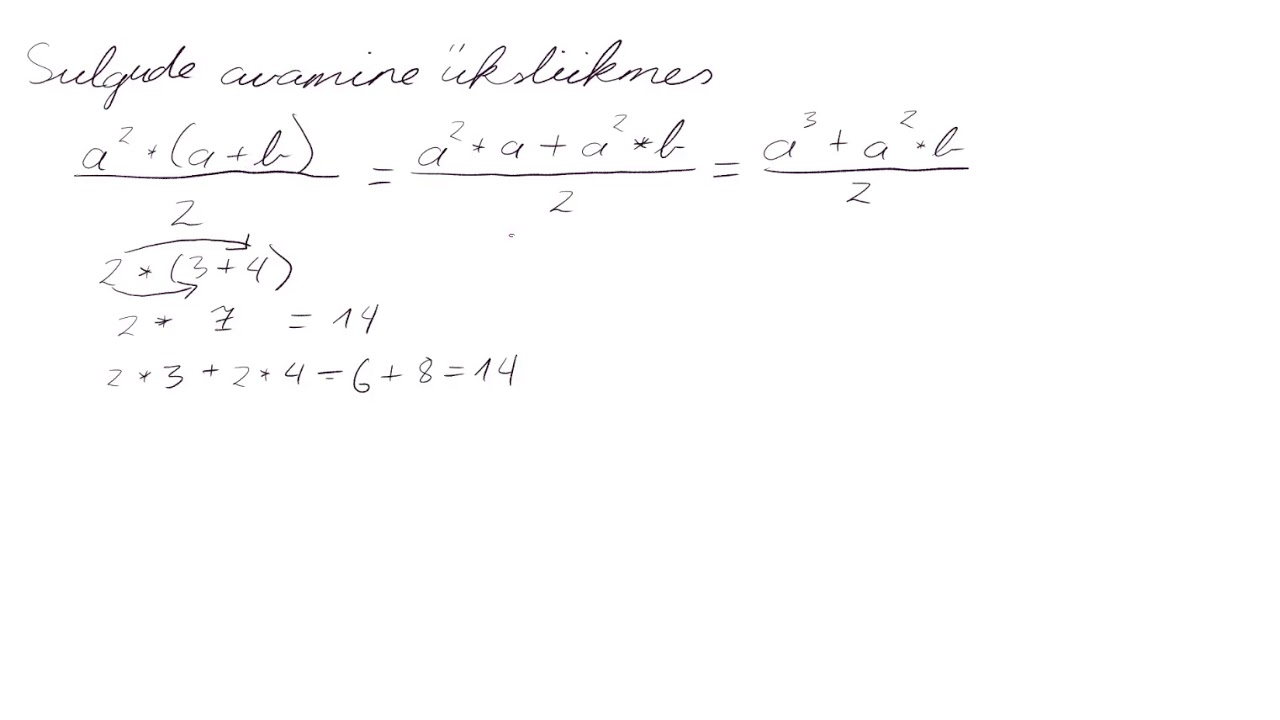 Sulgude avamine üksliikmes
a² * (a+b) / 2 = a² * a + a² * b / 2 = a³ + a² * b / 2
2 * (3+4)
2 * 7 = 14
2 * 3 + 2 * 4 = 6 + 8 = 14